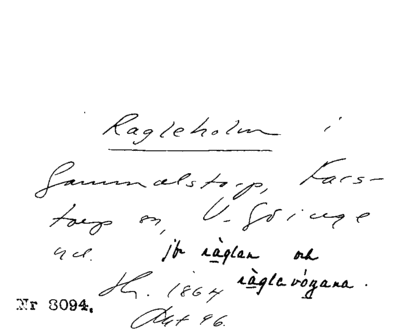 Ragleholm i
Gammalstorp, Kars-
torp sn, V. Göinge
hd. jfr ràglan och
ràglavógana.
1864
Nr 8094.